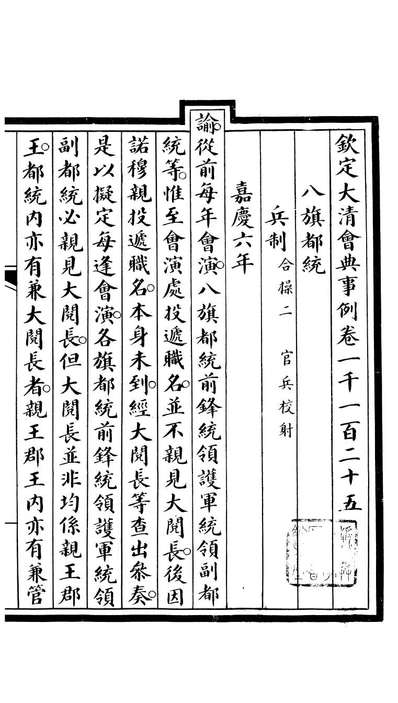 欽定大清會典事例卷一千一百二十五
八旗都統
兵制 合操二 官兵校射
嘉慶六年
諭。從前每年會演。八旗都統前鋒統領護軍統領副都
統等。惟至會演處投遞職名。並不親見大閱長。後因
諾穆親投遞職名。本身未到。經大閱長等查出叅奏。
是以擬定每逢會演。各旗都統前鋒統領護軍統領
副都統必親見大閱長。但大閱長並非均係親王郡
王。都統內亦有兼大閱長者。親王郡王內亦有兼管